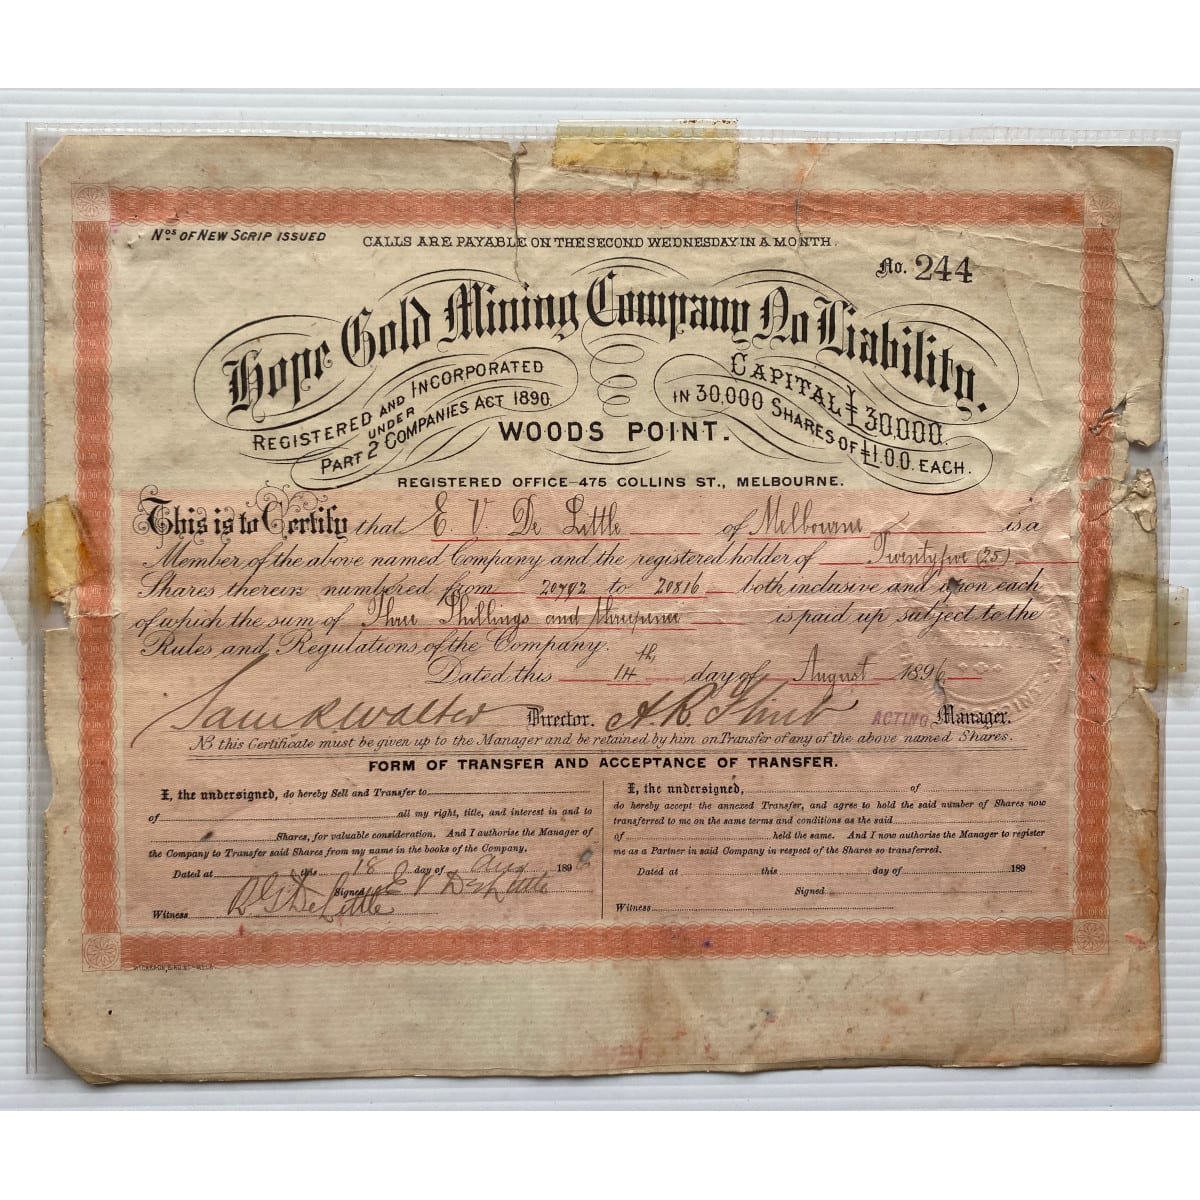 Nos OF NEW SCRIP ISSUED
CALLS ARE PAYABLE ON THE SECOND WEDNESDAY IN A MONTH.
No. 244
Hope Gold Mining Company No Liability.
REGISTERED AND INCORPORATED
UNDER
PART 2 COMPANIES ACT 1890
CAPITAL £30,000.
IN 30,000 SHARES OF £1.0.0. EACH.
WOODS POINT.
REGISTERED OFFICE—475 COLLINS ST., MELBOURNE.
This is to Certify that E. V. De Little of Melbourne is a
Member of the above named Company and the registered holder of Twentyfive (25)
Shares therein numbered from 20792 to 20816 both inclusive and upon each
of which the sum of Three Shillings and threepence is paid up subject to the
Rules and Regulations of the Company.
Dated this 14th day of August 1896
Director. ACTING Manager.
NB this Certificate must be given up to the Manager and be retained by him on Transfer of any of the above named Shares.
FORM OF TRANSFER AND ACCEPTANCE OF TRANSFER.
I, the undersigned, do hereby Sell and Transfer to
of all my right, title, and interest in and to
Shares, for valuable consideration. And I authorise the Manager of
the Company to Transfer said Shares from my name in the books of the Company.
Dated at this 18 day of Aug 1896
Signed E V De Little
Witness B G De Little
I, the undersigned, of
do hereby accept the annexed Transfer, and agree to hold the said number of Shares now
transferred to me on the same terms and conditions as the said
of held the same. And I now authorise the Manager to register
me as a Partner in said Company in respect of the Shares so transferred.
Dated at this day of 189
Signed
Witness